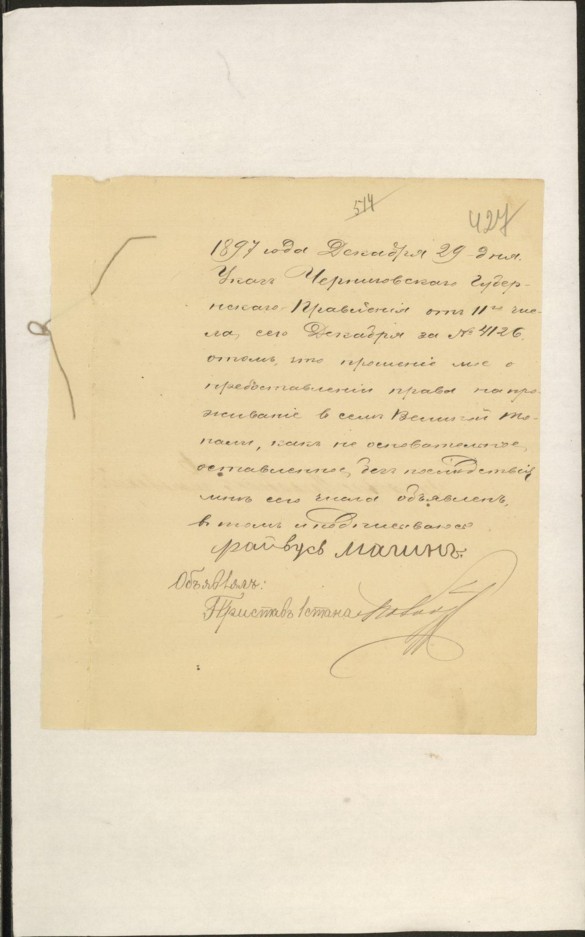 514
427
1897 года Декабря 29 дня.
Указъ Черниговскаго Губер-
нскаго Правленiя отъ 11го чис-
ла, сего Декабря за № 4126,
о томъ, что прошенiе мое о
предоставленiи права на про-
живанiе в селѣ Великой То-
пали, какъ не основательное,
оставленное, безъ последствiй
мнѣ сего числа объявленъ,
в томъ и подписываюсь
Магинъ
Объявлялъ:
Приставъ 1 стана